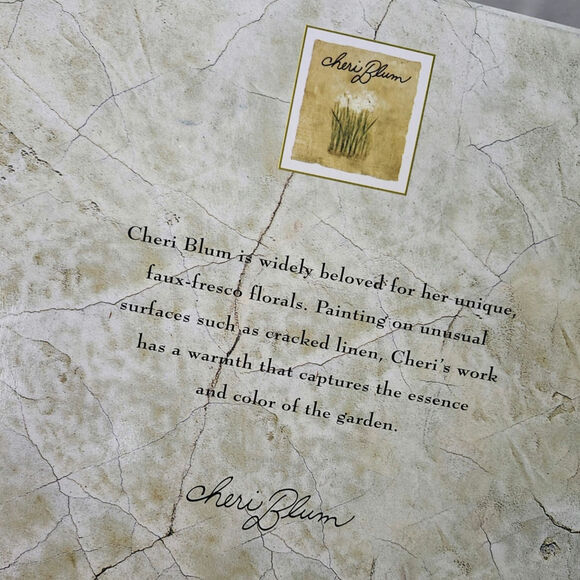 Cheri Blum
Cheri Blum is widely beloved for her unique,
faux-fresco florals. Painting on unusual
surfaces such as cracked linen, Cheri's work
has a warmth that captures the essence
and color of the garden.
Cheri Blum